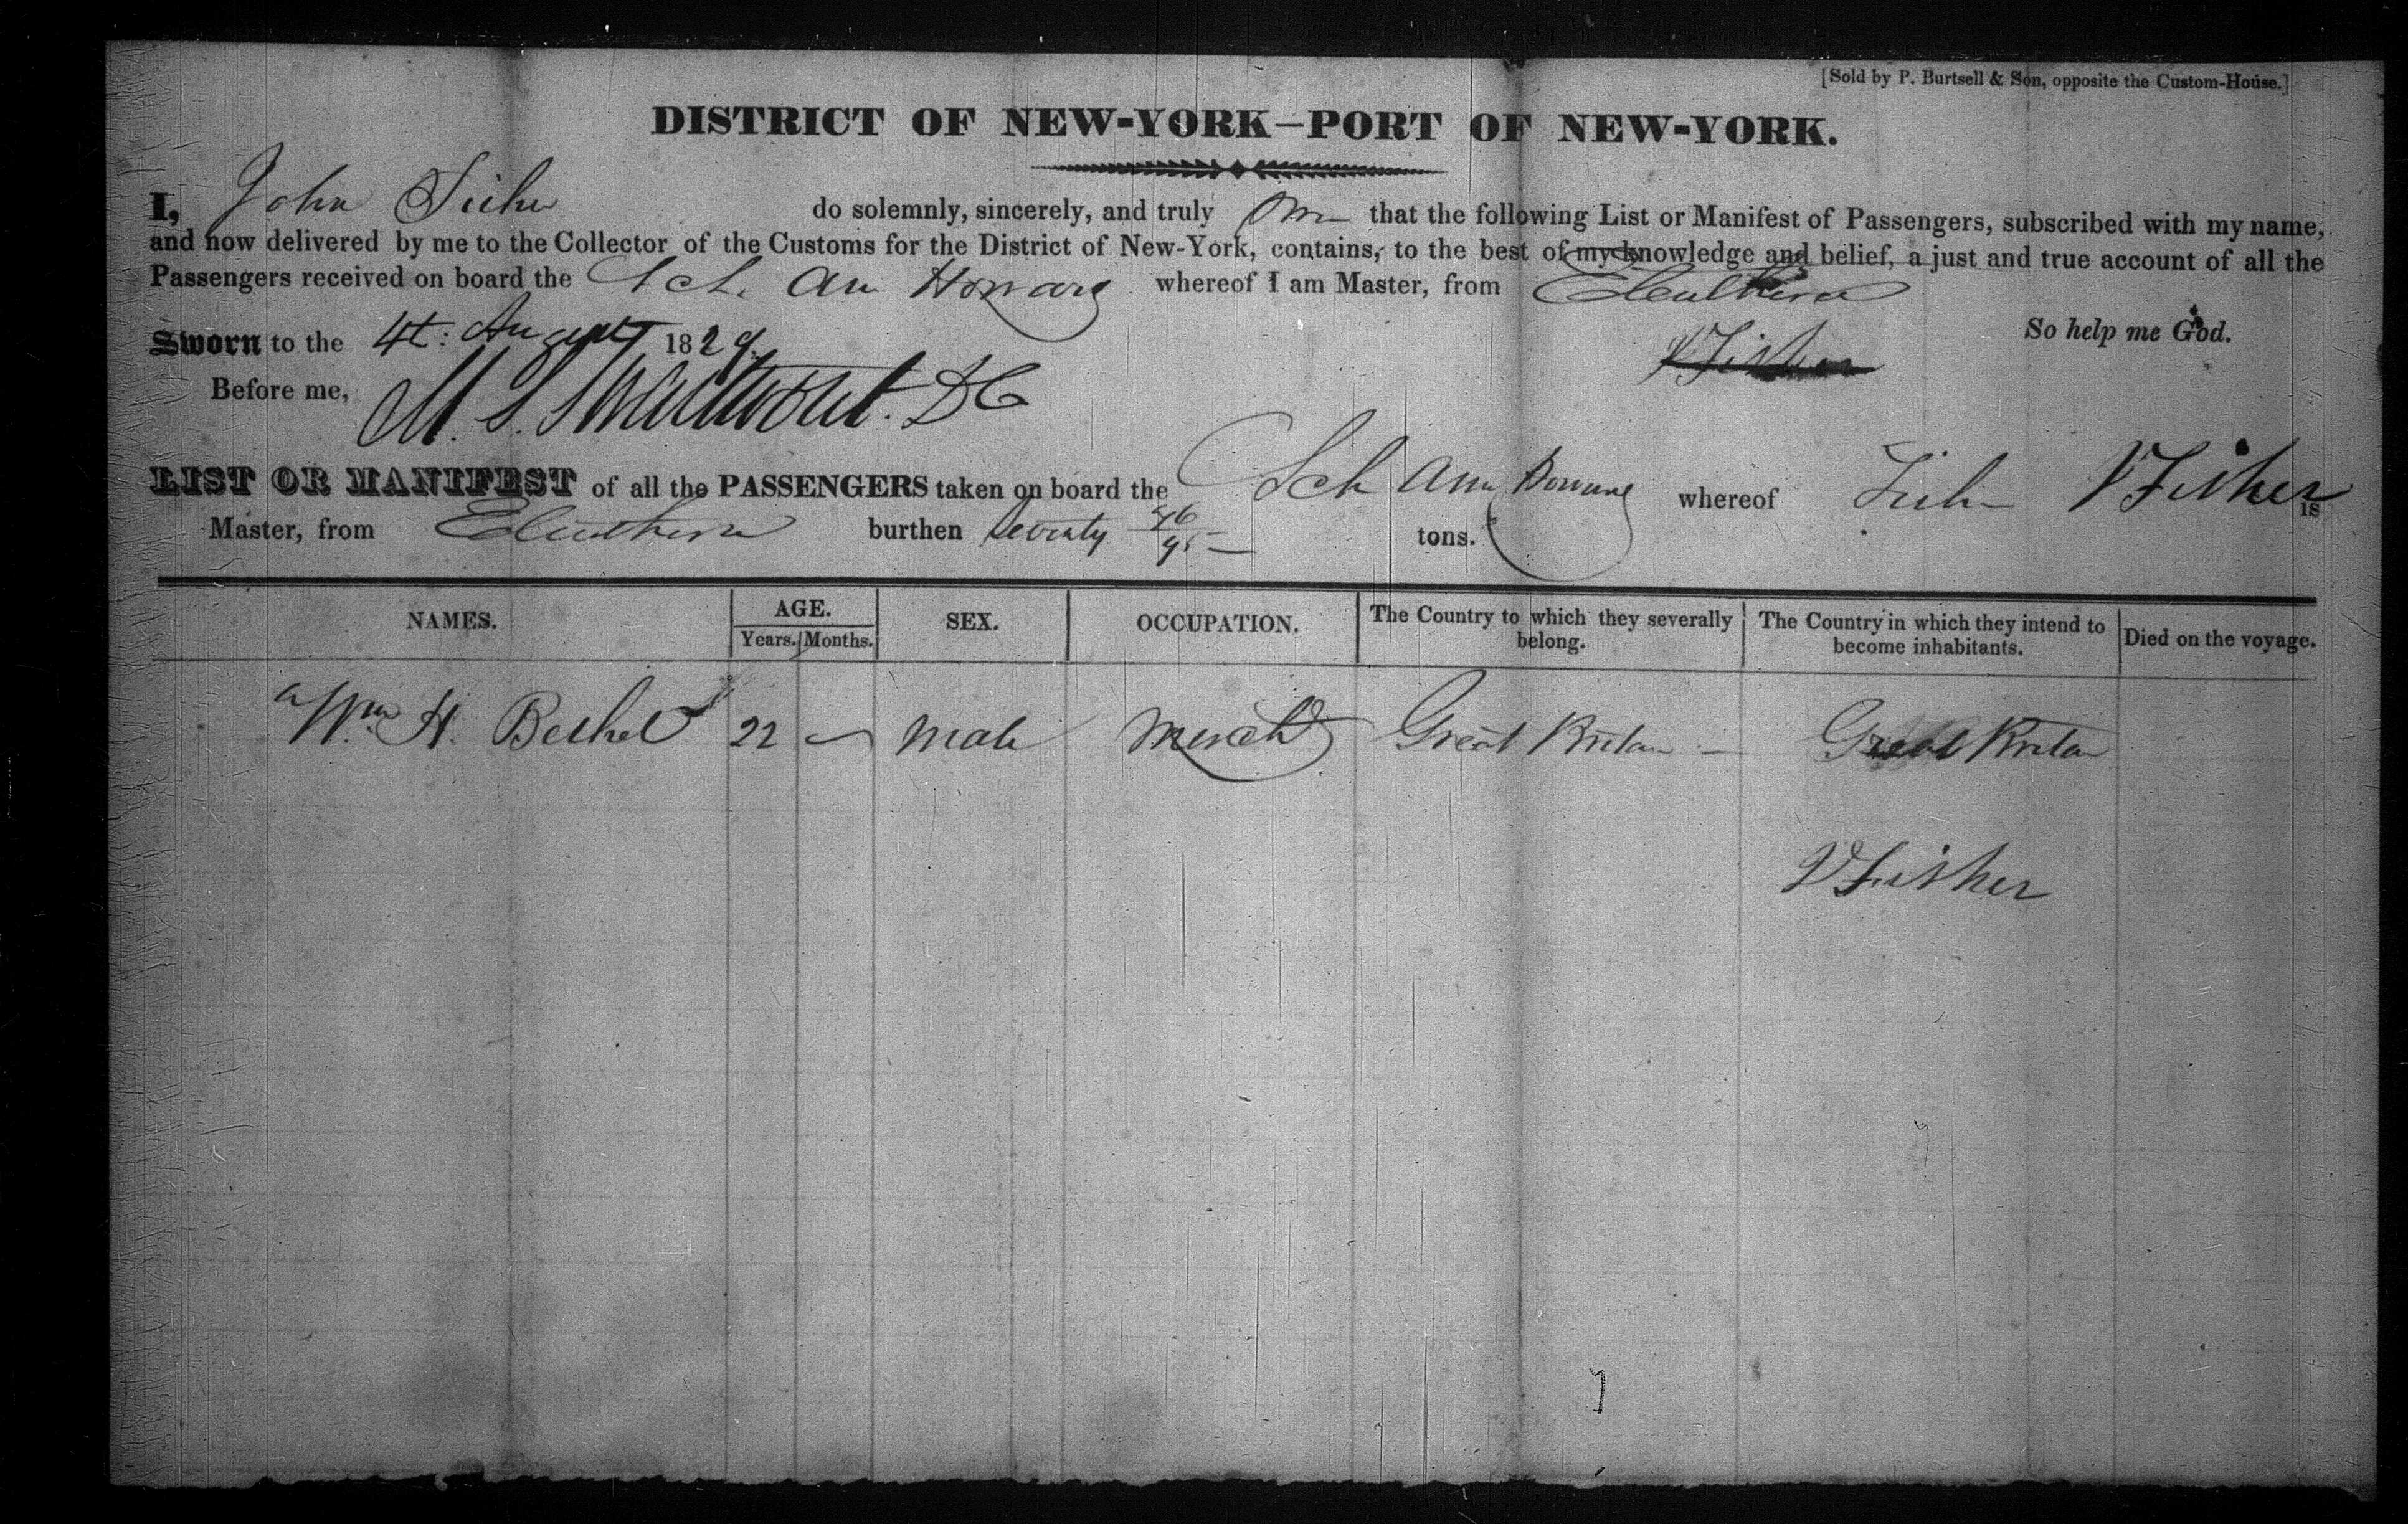 [Sold by P. Burtsell & Son, opposite the Custom-House.]
DISTRICT OF NEW-YORK—PORT OF NEW-YORK.
I, John do solemnly, sincerely, and truly that the following List or Manifest of Passengers, subscribed with my name,
and now delivered by me to the Collector of the Customs for the District of New-York, contains, to the best of my knowledge and belief, a just and true account of all the
Passengers received on board the Sch. Ann Howard whereof I am Master, from Eleuthera
Sworn to the 4t: August 1829. So help me God.
VFisher
Before me, M. S. Swartwout. DC
LIST OR MANIFEST of all the PASSENGERS taken on board the Sch Ann Howard whereof VFisher is
Master, from Eleuthera burthen seventy 46/95 tons.
NAMES. AGE. SEX. OCCUPATION. The Country to which they severally belong. The Country in which they intend to become inhabitants. Died on the voyage.
Years. Months.
Wm H. Bethel 22 — male mercht Great Britain — Great Britain
VFisher